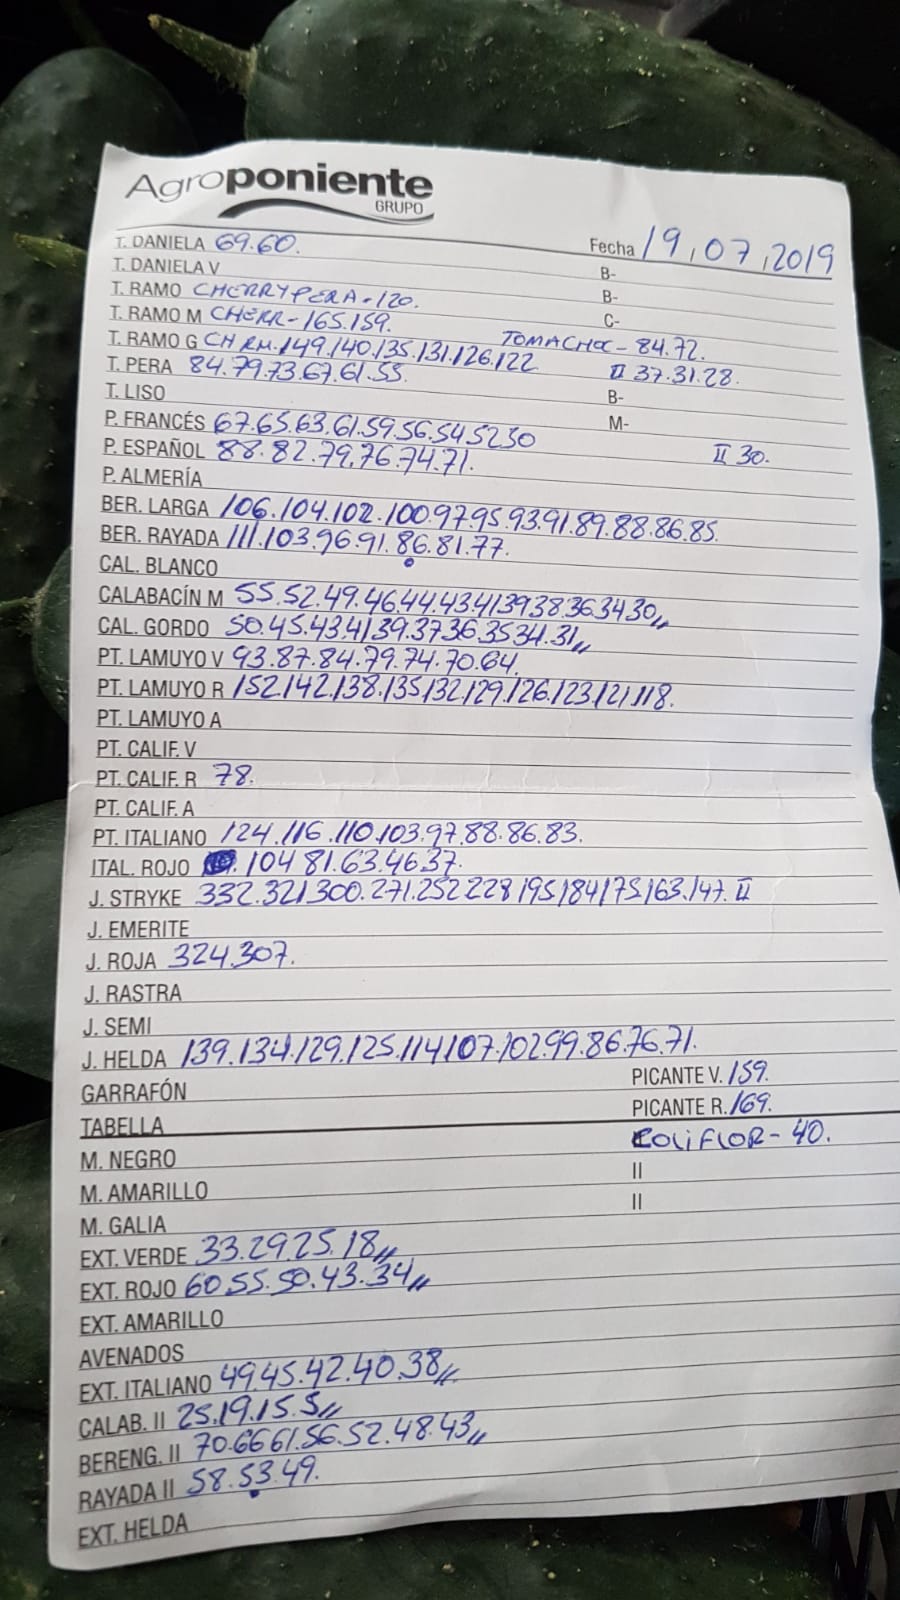 Agroponiente
GRUPO
Fecha 19,07,2019
T. DANIELA 69.60.
T. DANIELA V B-
T. RAMO CHERRYPERA-120. B-
T. RAMO M CHERR-165.159. C-
T. RAMO G CH RM.149.140.135.131.126.122 TOMACHOC-84.72.
T. PERA 84.79.73.67.61.55. II 37.31.28.
T. LISO B-
P. FRANCÉS 67.65.63.61.59.56.54.52.50 M-
P. ESPAÑOL 88.82.79.76.74.71. II 30.
P. ALMERÍA
BER. LARGA 106.104.102.100.97.95.93.91.89.88.86.85.
BER. RAYADA 111.103.96.91.86.81.77.
CAL. BLANCO
CALABACÍN M 55.52.49.46.44.43.41.39.38.36.34.30,,
CAL. GORDO 50.45.43.41.39.37.36.35.34.31,,
PT. LAMUYO V 93.87.84.79.74.70.64.
PT. LAMUYO R 152.142.138.135.132.129.126.123.121.118.
PT. LAMUYO A
PT. CALIF. V
PT. CALIF. R 78.
PT. CALIF. A
PT. ITALIANO 124.116.110.103.97.88.86.83.
ITAL. ROJO 104.81.63.46.37.
J. STRYKE 332.321.300.271.252.228.195.184.175.163.147. II
J. EMERITE
J. ROJA 324.307.
J. RASTRA
J. SEMI
J. HELDA 139.134.129.125.114.107.102.99.86.76.71.
GARRAFÓN PICANTE V. 159.
TABELLA PICANTE R. 169.
M. NEGRO COLIFLOR-40.
M. AMARILLO II
M. GALIA II
EXT. VERDE 33.29.25.18,,
EXT. ROJO 60.55.50.43.34,,
EXT. AMARILLO
AVENADOS
EXT. ITALIANO 49.45.42.40.38,,
CALAB. II 25.19.15.5,,
BERENG. II 70.66.61.56.52.48.43,,
RAYADA II 58.53.49.
EXT. HELDA